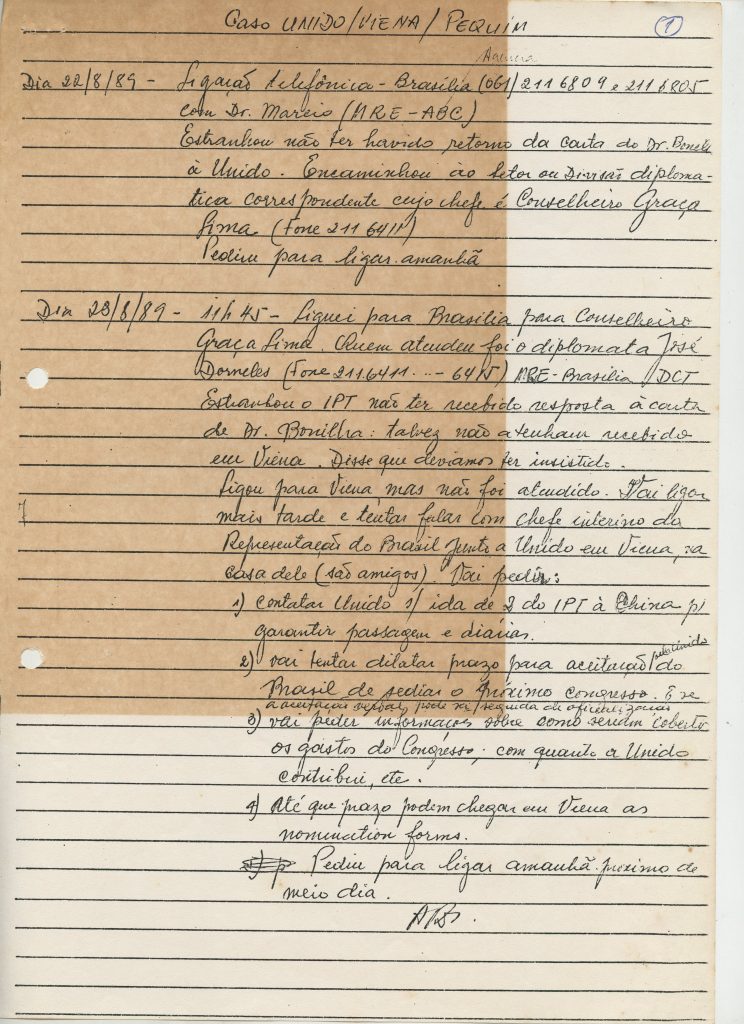 Caso UNIDO/VIENA/PEQUIM
1
Agência
Dia 22/8/89 - Ligação telefônica - Brasília (061) 2116809 e 2116805
com Dr. Marcio (MRE-ABC)
Estranhou não ter havido retorno da carta do Dr.
à Unido. Encaminhou ao setor ou Divisão diploma-
tica correspondente cujo chefe é Conselheiro Graça
Lima (Fone 211 6411)
Pediu para ligar amanhã
Dia 23/8/89 - 11h45 - Liguei para Brasilia para Conselheiro
Graça Lima. Quem atendeu foi o diplomata José
Dorneles (Fone 211.6411 ... - 6415) MRE-Brasilia/DCT
Estranhou o IPT não ter recebido resposta à carta
de Dr. Bonilha: talvez não a tenham recebido
em Viena. Disse que deviamos ter insistido.
Ligou para Viena, mas não foi atendido. Vai ligar
mais tarde e tentar falar com chefe interino da
Representação do Brasil junto a Unido em Viena, na
casa dele (são amigos). Vai pedir:
1) contatar Unido s/ ida de 2 do IPT à China p/
garantir passagem e diárias.
2) vai tentar dilatar prazo para aceitação pela Unido do
Brasil de sediar o próximo congresso. E se
a aceitação verbal pode ser seguida de
3) vai pedir informações sobre como seriam coberto
os gastos do Congresso; com quanto a Unido
contribui, etc.
4) Até que prazo podem chegar em Viena as
nomination forms.
Pediu para ligar amanhã próximo de
meio dia.